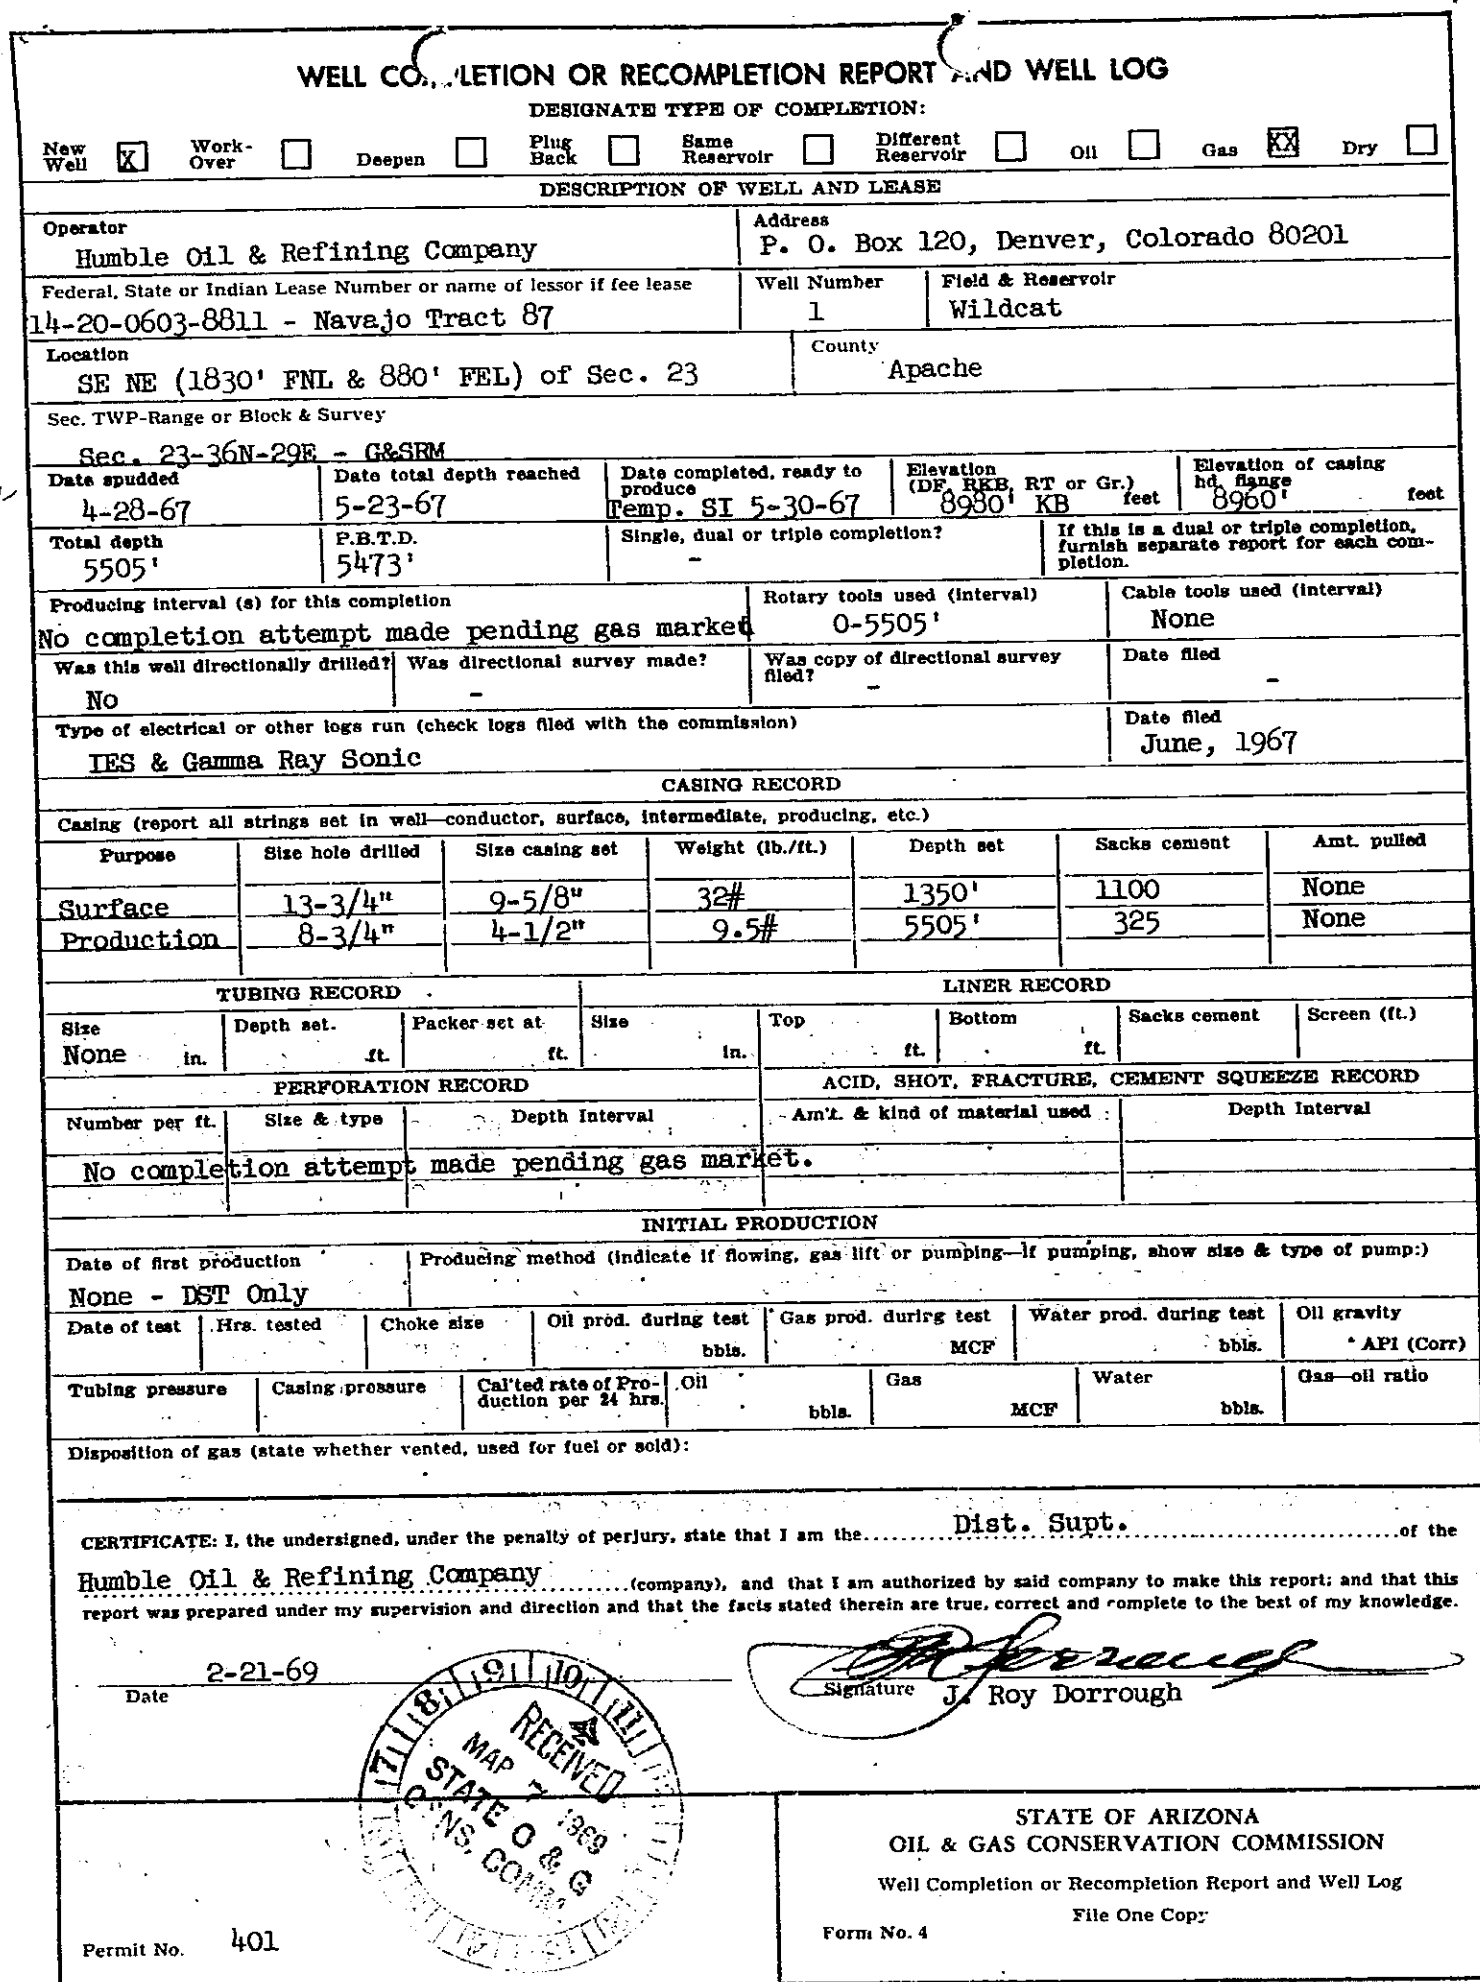 WELL CO... LETION OR RECOMPLETION REPORT AND WELL LOG
DESIGNATE TYPE OF COMPLETION:
New Well X Work-Over Deepen Plug Back Same Reservoir Different Reservoir Oil Gas XX Dry
DESCRIPTION OF WELL AND LEASE
Operator Address
Humble Oil & Refining Company P. O. Box 120, Denver, Colorado 80201
Federal, State or Indian Lease Number or name of lessor if fee lease Well Number Field & Reservoir
14-20-0603-8811 - Navajo Tract 87 1 Wildcat
Location County
SE NE (1830' FNL & 880' FEL) of Sec. 23 Apache
Sec. TWP-Range or Block & Survey
Sec. 23-36N-29E - G&SRM
Date spudded Date total depth reached Date completed, ready to produce Elevation (DF, RKB, RT or Gr.) Elevation of casing hd. flange
4-28-67 5-23-67 Temp. SI 5-30-67 8980' KB feet 8960' feet
Total depth P.B.T.D. Single, dual or triple completion? If this is a dual or triple completion, furnish separate report for each completion.
5505' 5473' -
Producing interval (s) for this completion Rotary tools used (interval) Cable tools used (interval)
No completion attempt made pending gas market 0-5505' None
Was this well directionally drilled? Was directional survey made? Was copy of directional survey filed? Date filed
No - - -
Type of electrical or other logs run (check logs filed with the commission) Date filed
IES & Gamma Ray Sonic June, 1967
CASING RECORD
Casing (report all strings set in well—conductor, surface, intermediate, producing, etc.)
Purpose Size hole drilled Size casing set Weight (lb./ft.) Depth set Sacks cement Amt. pulled
Surface 13-3/4" 9-5/8" 32# 1350' 1100 None
Production 8-3/4" 4-1/2" 9.5# 5505' 325 None
TUBING RECORD LINER RECORD
Size Depth set. Packer set at Size Top Bottom Sacks cement Screen (ft.)
None in. ft. ft. in. ft. ft.
PERFORATION RECORD ACID, SHOT, FRACTURE, CEMENT SQUEEZE RECORD
Number per ft. Size & type Depth Interval Am't. & kind of material used Depth Interval
No completion attempt made pending gas market.
INITIAL PRODUCTION
Date of first production Producing method (indicate if flowing, gas lift or pumping—if pumping, show size & type of pump:)
None - DST Only
Date of test Hrs. tested Choke size Oil prod. during test Gas prod. during test Water prod. during test Oil gravity
bbls. MCF bbls. ° API (Corr)
Tubing pressure Casing pressure Cal'ted rate of Production per 24 hrs. Oil Gas Water Gas—oil ratio
bbls. MCF bbls.
Disposition of gas (state whether vented, used for fuel or sold):
CERTIFICATE: I, the undersigned, under the penalty of perjury, state that I am the Dist. Supt. of the
Humble Oil & Refining Company (company), and that I am authorized by said company to make this report; and that this
report was prepared under my supervision and direction and that the facts stated therein are true, correct and complete to the best of my knowledge.
2-21-69
Date Signature J. Roy Dorrough
7 8 9 10 11
RECEIVED
MAR 7 1969
STATE O & G
CONS. COMM.
STATE OF ARIZONA
OIL & GAS CONSERVATION COMMISSION
Well Completion or Recompletion Report and Well Log
File One Copy
Form No. 4
Permit No. 401